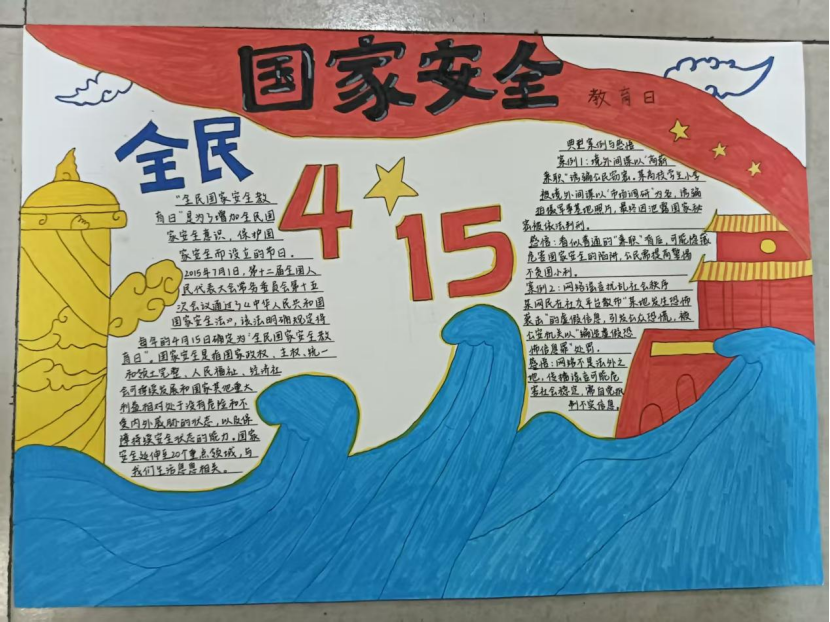 国家安全
教育日
全民
4·15
"全民国家安全教
育日"是为了增加全民国
家安全意识，保护国
家安全而设立的节日。
2015年7月1日，第十二届全国人
民代表大会常务委员会第十五
次会议通过了《中华人民共和国
国家安全法》，该法明确规定将
每年的4月15日确定为"全民国家安全教
育日"。国家安全是指国家政权、主权、统一
和领土完整、人民福祉、经济社
会可持续发展和国家其他重大
利益相对处于没有危险和不
受内外威胁的状态，以及保
障持续安全状态的能力。国家
安全延伸至20个重点领域，与
我们生活息息相关。
典型案例与感悟
案例1：境外间谍以"高薪
兼职"诱骗公民窃密。某高校学生小李
被境外间谍以"市场调研"为名，诱骗
拍摄军事基地照片，最终因泄露国家秘
密被依法判刑。
感悟：看似普通的"兼职"背后，可能隐藏
危害国家安全的陷阱，公民需提高警惕
不贪图小利。
案例2：网络谣言扰乱社会秩序
某网民在社交平台散布"某地发生恐怖
袭击"的虚假信息，引发公众恐慌，被
公安机关以"编造虚假恐
怖信息罪"处罚。
感悟：网络不是法外之
地，传播谣言可能危
害社会稳定，需自觉抵
制不实信息。